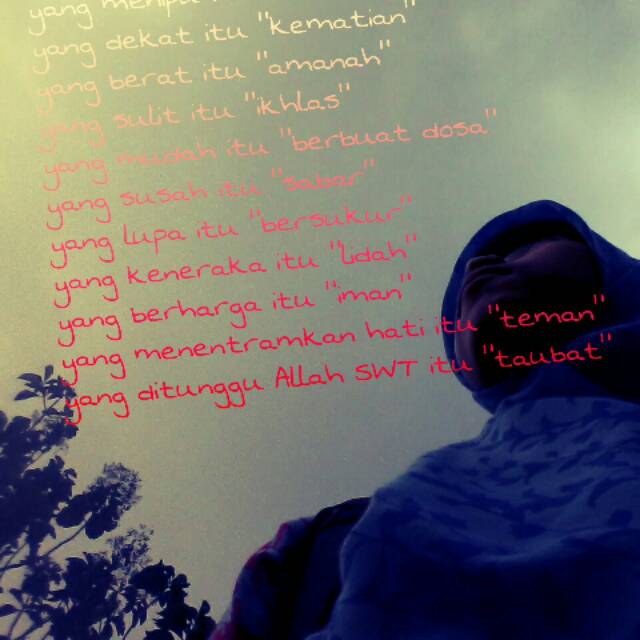 yang
yang dekat itu "kematian"
yang berat itu "amanah"
yang sulit itu "ikhlas"
yang mudah itu "berbuat dosa"
yang susah itu "sabar"
yang lupa itu "bersukur"
yang keneraka itu "lidah"
yang berharga itu "iman"
yang menentramkan hati itu "teman"
yang ditunggu Allah SWT itu "taubat"